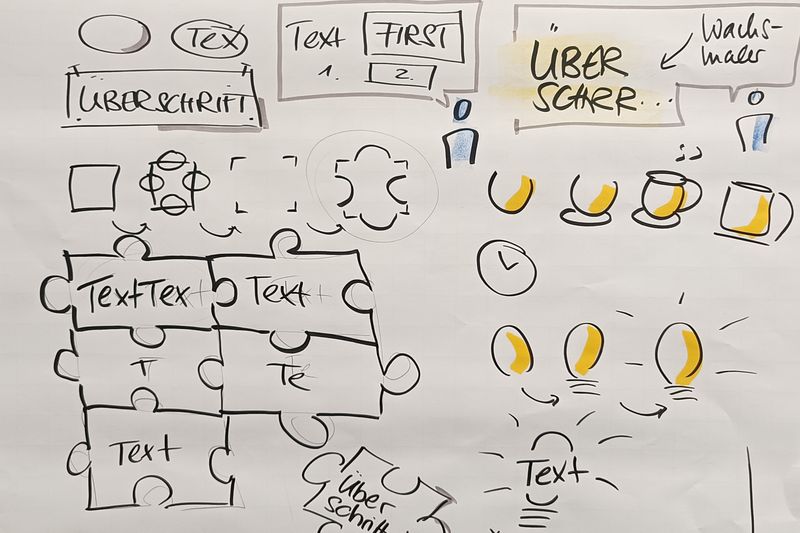 Text
ÜBERSCHRIFT
Text FIRST
1. 2.
ÜBER
SCHRR...
Wachs-
maler
TextText Text
T Te
Text
Text
Über
schrift